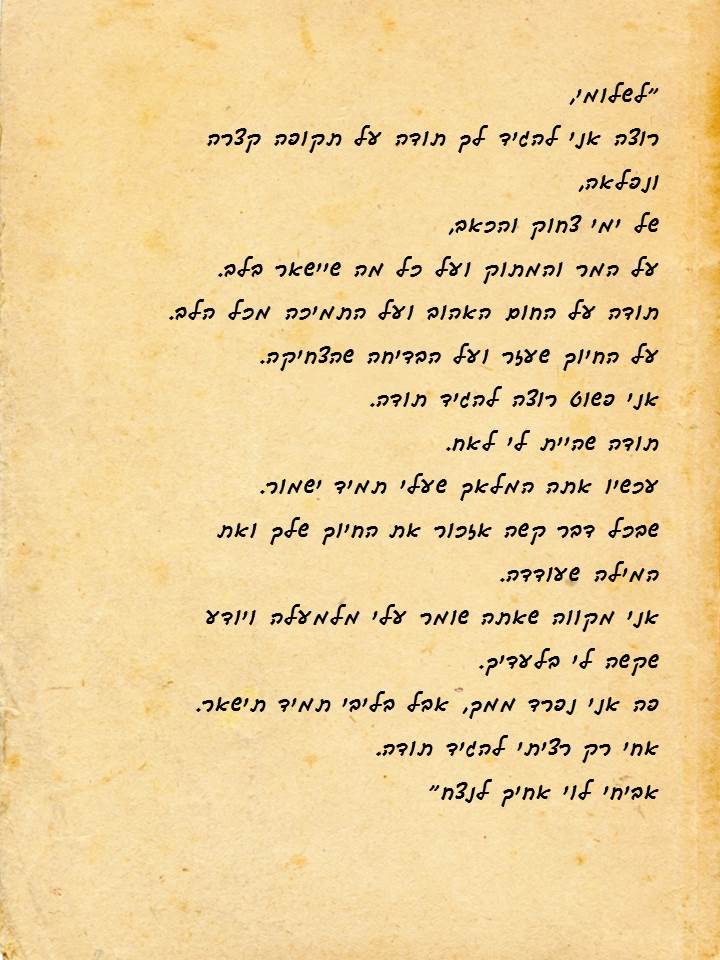 "לשלומי,
רוצה אני להגיד לך תודה על תקופה קצרה
ונפלאה,
של ימי צחוק והכאב,
על המר והמתוק ועל כל מה שיישאר בלב.
תודה על החום האהוב ועל התמיכה מכל הלב.
על החיוך שעזר ועל הבדיחה שהצחיקה.
אני פשוט רוצה להגיד תודה.
תודה שהיית לי לאח.
עכשיו אתה המלאך שעלי תמיד ישמור.
שבכל דבר קשה אזכור את החיוך שלך ואת
המילה שעודדה.
אני מקווה שאתה שומר עלי מלמעלה ויודע
שקשה לי בלעדיך.
פה אני נפרד ממך, אבל בליבי תמיד תישאר.
אחי רק רציתי להגיד תודה.
אביחי לוי אחיך לנצח"